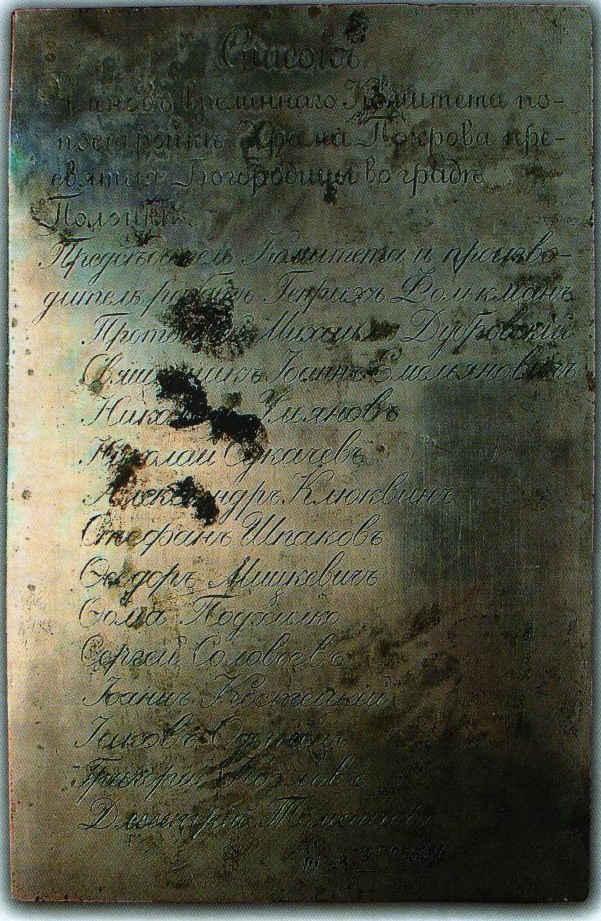 Списокъ
Членовъ временнаго Комитета по-
постройкѣ Храма Покрова пре-
святыя Богородицы во градѣ
Полоцкѣ.
Предсѣдатель Комитета и произво-
дитель работъ Генрихъ Фолькманъ
Протоіерей Михаилъ Дубровскій
Священникъ Іоаннъ Емельяновичъ
Николай Ульяновъ
Николай Сукачевъ
Александръ Клюквинъ
Стефанъ Шпаковъ
Ѳеодоръ Мишкевичъ
Ѳома Подхилко
Сергей Соловьевъ
Іоаннъ Костецкій
Іаковъ
Григорій Козловъ
Дмитрій